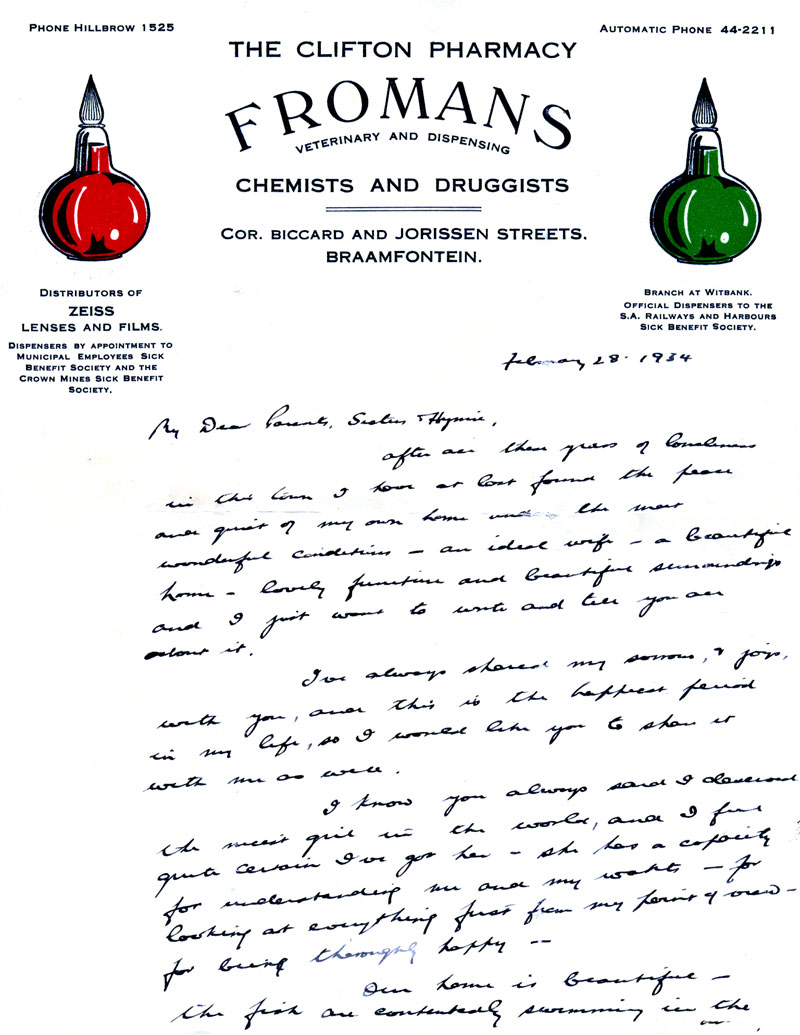 PHONE HILLBROW 1525
AUTOMATIC PHONE 44-2211
THE CLIFTON PHARMACY
FROMANS
VETERINARY AND DISPENSING
CHEMISTS AND DRUGGISTS
COR. BICCARD AND JORISSEN STREETS.
BRAAMFONTEIN.
DISTRIBUTORS OF
ZEISS
LENSES AND FILMS.
DISPENSERS BY APPOINTMENT TO
MUNICIPAL EMPLOYEES SICK
BENEFIT SOCIETY AND THE
CROWN MINES SICK BENEFIT
SOCIETY.
BRANCH AT WITBANK.
OFFICIAL DISPENSERS TO THE
S.A. RAILWAYS AND HARBOURS
SICK BENEFIT SOCIETY.
February 28. 1934
My Dear Parents, Sisters & Hymie,
after all these years of loneliness
in this town I have at last found the peace
and quiet of my own home under the most
wonderful conditions – an ideal wife – a beautiful
home – lovely furniture and beautiful surroundings
and I just want to write and tell you all
about it.
I've always shared my sorrows, & joys,
with you, and this is the happiest period
in my life, so I would like you to share it
with me as well.
I know you always said I deserved
the nicest girl in the world, and I feel
quite certain I've got her – she has a capacity
for understanding me and my wants – for
looking at everything just from my point of view –
for being thoroughly happy --
Our home is beautiful –
the fish are contentedly swimming in the